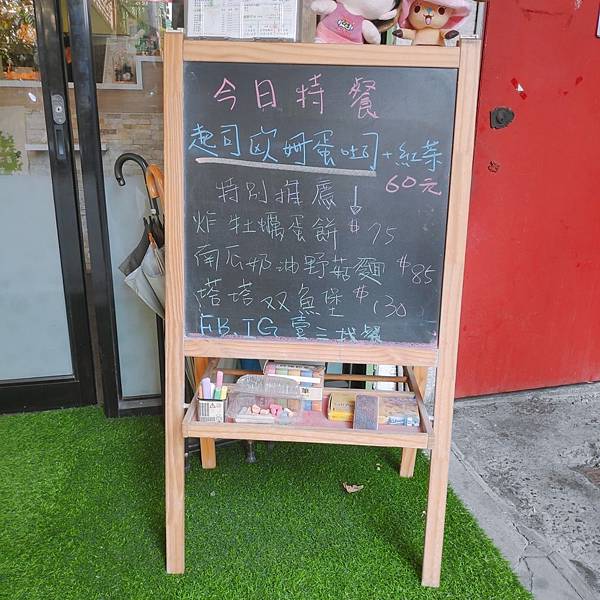 今日特餐
起司歐姆蛋吐司+紅茶
60元
特別推薦↓
炸牡蠣蛋餅$75
南瓜奶油野菇麵$85
塔塔双魚堡$130
FB.IG 壹三找餐